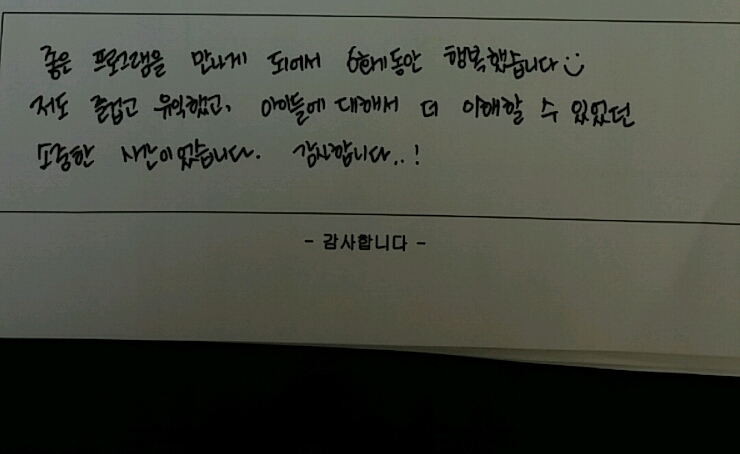 좋은 프로그램을 만나게 되어서 6회기동안 행복했습니다
저도 즐겁고 유익했고, 아이들에 대해서 더 이해할 수 있었던
소중한 시간이었습니다. 감사합니다..!
- 감사합니다 -